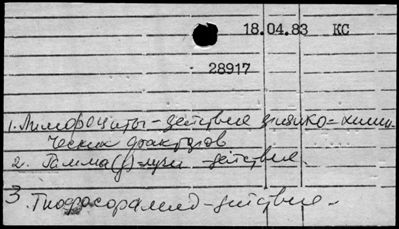 18.04.83 КС
28917
1. Лимфоциты - действие физико-хими-
ческих факторов
2. Гамма(γ)-лучи - действие.
3. Тиофосфорамид - действие.